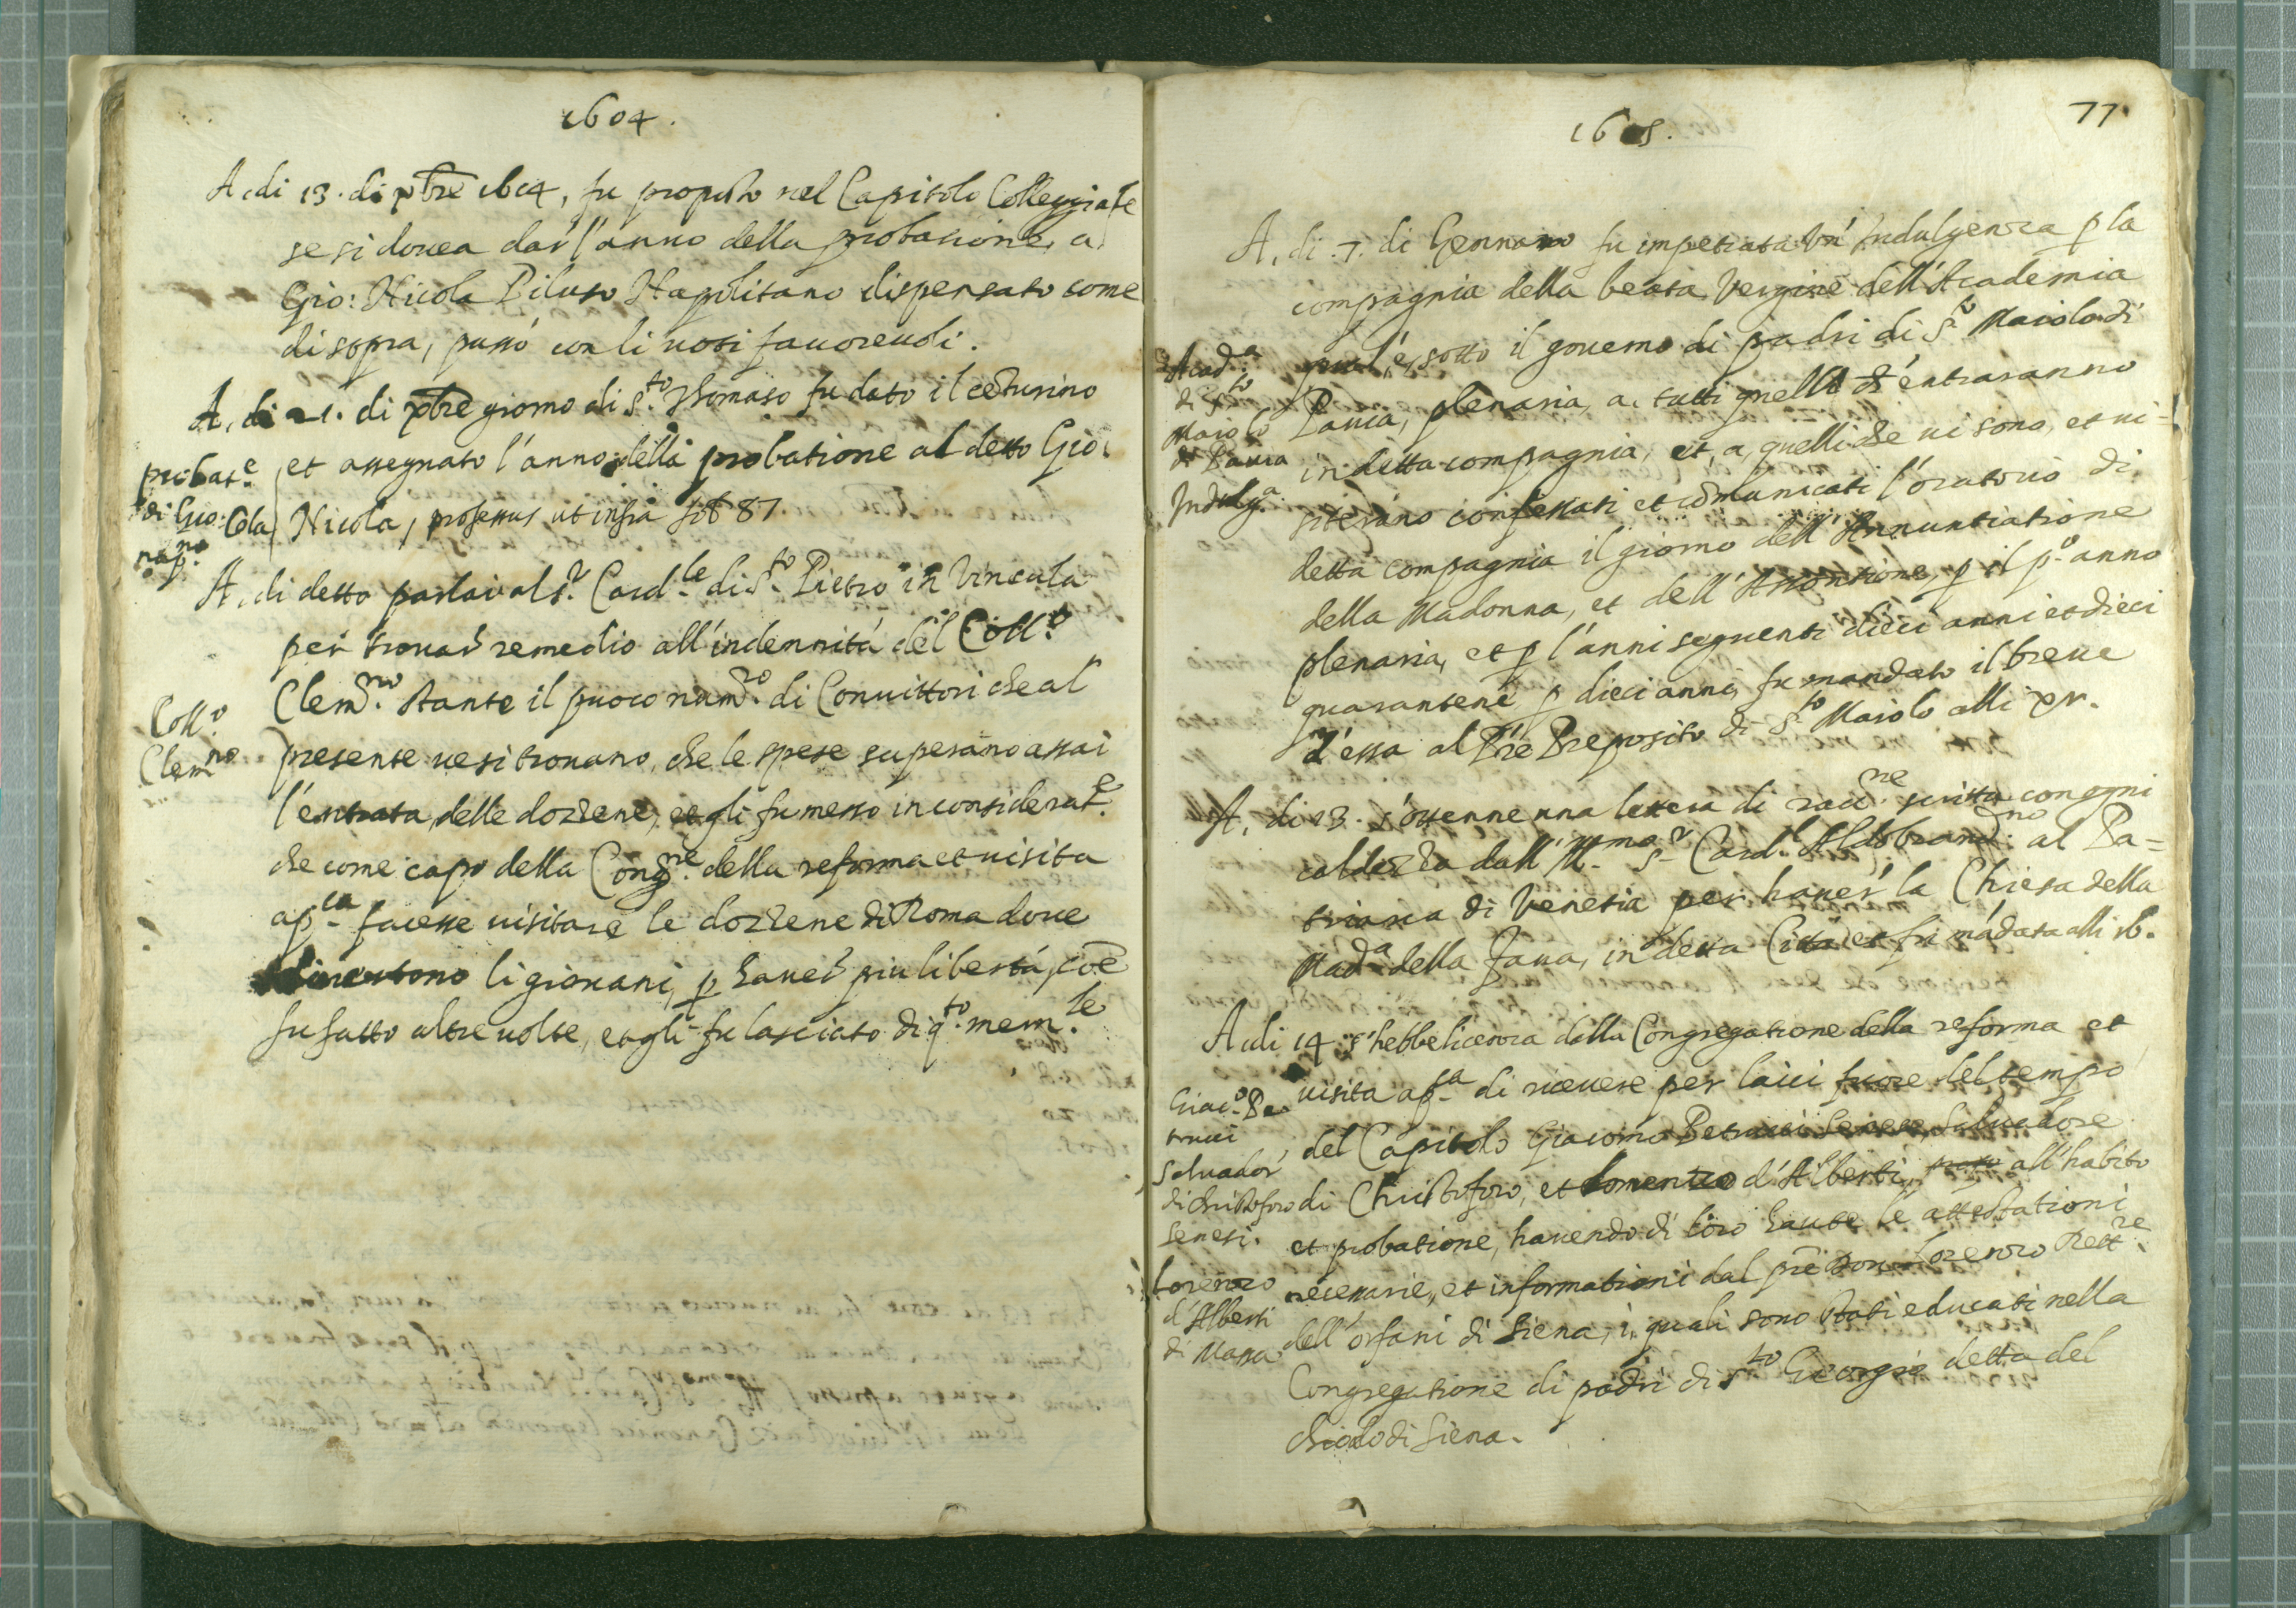 1604.
A, di 13. di xbre 1604, fu proposto nel Capitolo Collegiate
se si douea dar l'anno della probatione, a,
Gio: Nicola Piluso Napolitano dispensato come
di sopra, passò con li uoti fauoreuoli.
A, di 21. di xbre giorno di S.to Thomaso fu dato il centurino
et assegnato l'anno della probatione al detto Gio:
Nicola, professus ut infra fol 87
probat.e
di Gio: Cola
nap.no
A, di detto parlai al S.r Card.le di S.to Pietro in Vincula
per trouar remedio all'indennità del Coll.o
Clem.no stante il puoco num.ro di Conuittori che al
presente ue si trouano, che le spese superano assai
l'entrata delle dozzene, et gli fu messo in considerat.e
che come capo della Cong.ne della reforma et uisita
ap.ca facesse uisitare le dozzene di Roma doue
li giouani, p hauer piu libertà, coē
fu fatto altre uolte, et gli fu lasciato di q.to mem.le
Coll.o
Clem.no
1605.
77.
A, di .7. di Gennaro fu impetrata un' Indulgenza p la
compagnia della beata Vergine dell'Academia
qual'è, sotto il gouerno di padri di S.to Maiolo di
Pauia, plenaria, a, tutti quelli ch'entraranno
in detta compagnia, et, a, quelli che ui sono, et ui-
siterano confessati et comunicati l'oratorio di
detta compagnia il giorno dell'Annuntiatione
della Madonna, et dell'Assontione, p il p.o anno
plenaria, et p l'anni seguenti dieci anni et dieci
quarantene p dieci anni, fu mandato il breue
d'essa al Pre Preposito di S.to Maiolo alli xv.
Acad.a
di S.to
Maiolo
di Pauia
Indulg.a
A, di 13. s'ottenne una lettera di racc.ne scritta con ogni
caldezza dall'Ill.mo S.r Card.l Aldobrand.no al Pa-
triarca di Venetia per hauer la Chiesa della
Mad.a della Faua, in detta Città et fu mādata alli 16.
A di 14 s'hebbe licenza dalla Congregatione della reforma et
uisita ap.ca di riceuere per laici fuore del tempo
del Capitolo Giacomo Petrucci Senese, Saluadore
di Christoforo, et Lorenzo d'Alberti, all'habito
et probatione, hauendo di loro haute le attestationi
necessarie, et informationi dal pre Don Lorenzo Rett.re
dell'orfani di Siena, i quali sono stati educati nella
Congregatione di padri di S.to Georgio detta del
chiodo di Siena.
Giac.o Pe-
trucci
Saluador
di Christoforo
Senesi.
Lorenzo
d'Alberti
di Massa